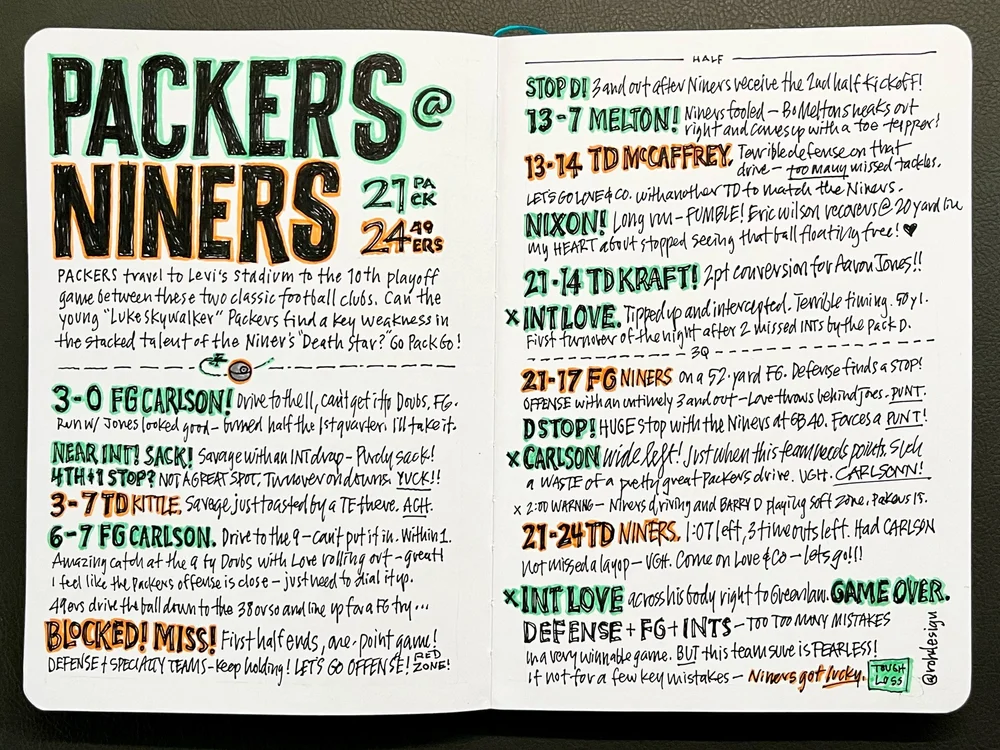 PACKERS @
NINERS
21 PACK
24 49ERS
PACKERS travel to Levi's Stadium to the 10th playoff
game between these two classic football clubs. Can the
young "Luke Skywalker" Packers find a key weakness in
the stacked talent of the Niner's "Death Star?" Go Pack Go!
3-0 FG CARLSON! Drive to the 11, can't get it to Doubs, FG.
Run w/ Jones looked good – burned half the 1st quarter! I'll take it.
NEAR INT! SACK! Savage with an INT drop – Purdy sack!
4TH+1 STOP? NOT A GREAT SPOT, Turnover on downs. YUCK!!
3-7 TD KITTLE. Savage just toasted by a TE there. ACH.
6-7 FG CARLSON. Drive to the 9 – can't put it in. Within 1.
Amazing catch at the 9 by Doubs with Love rolling out – great!
I feel like the Packers offense is close – just need to dial it up.
49ers drive the ball down to the 38 or so and line up for a FG try...
BLOCKED! MISS! First half ends, one-point game!
DEFENSE + SPECIALTY TEAMS – keep holding! LET'S GO OFFENSE! RED ZONE!
HALF
STOP D! 3 and out after Niners receive the 2nd half kickoff!
13-7 MELTON! Niners fooled – Bo Melton sneaks out
right and comes up with a toe tapper!
13-14 TD McCAFFREY. Terrible defense on that
drive – too many missed tackles.
LET'S GO LOVE & CO. with another TD to match the Niners.
NIXON! Long run – FUMBLE! Eric Wilson recovers @ 20 yard line
My HEART about stopped seeing that ball floating free! ♥
21-14 TD KRAFT! 2pt conversion for Aaron Jones!!
x INT LOVE. Tipped up and intercepted. Terrible timing. 50 yl.
First turnover of the night after 2 missed INTs by the Pack D.
3Q
21-17 FG NINERS on a 52-yard FG. Defense finds a STOP!
OFFENSE with an untimely 3 and out – Love throws behind Jones. PUNT.
D STOP! HUGE stop with the Niners at GB 40. Forces a PUNT!
x CARLSON wide left! Just when this team needs points. Such
a WASTE of a pretty great Packers drive. UGH. CARLSONN!
x 2:00 WARNING – Niners driving and BARRY D playing soft zone.
21-24 TD NINERS. 1:07 left, 3 timeouts left. Had CARLSON
not missed a layup – UGH. Come on Love & Co – lets go!!!
x INT LOVE across his body right to Greenlaw. GAME OVER.
DEFENSE + FG + INTS – TOO TOO MANY MISTAKES
in a very winnable game. BUT this team sure is FEARLESS!
If not for a few key mistakes – Niners got lucky.
TOUGH LOSS
@rohdesign